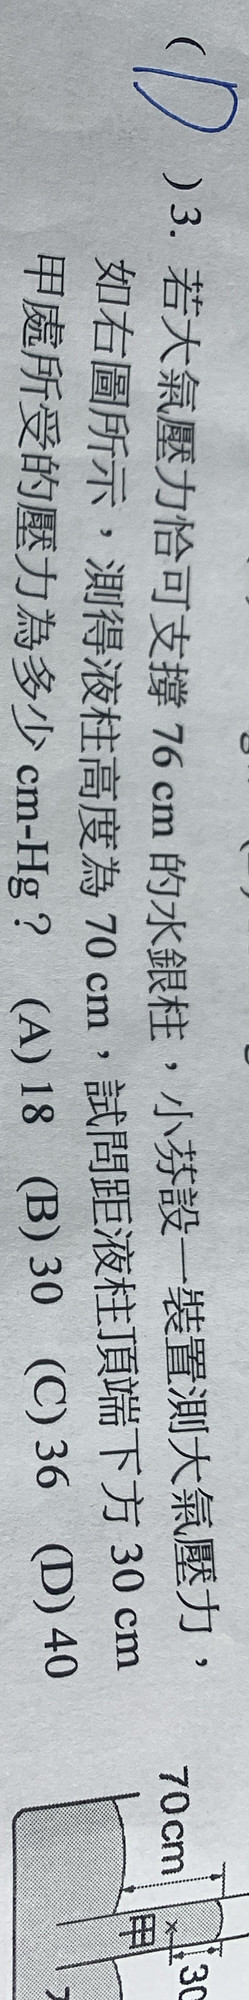 ( D ) 3. 若大氣壓力恰可支撐 76 cm 的水銀柱，小芬設一裝置測大氣壓力，
如右圖所示，測得液柱高度為 70 cm，試問距液柱頂端下方 30 cm
甲處所受的壓力為多少 cm-Hg？ (A) 18 (B) 30 (C) 36 (D) 40
70cm
30
甲